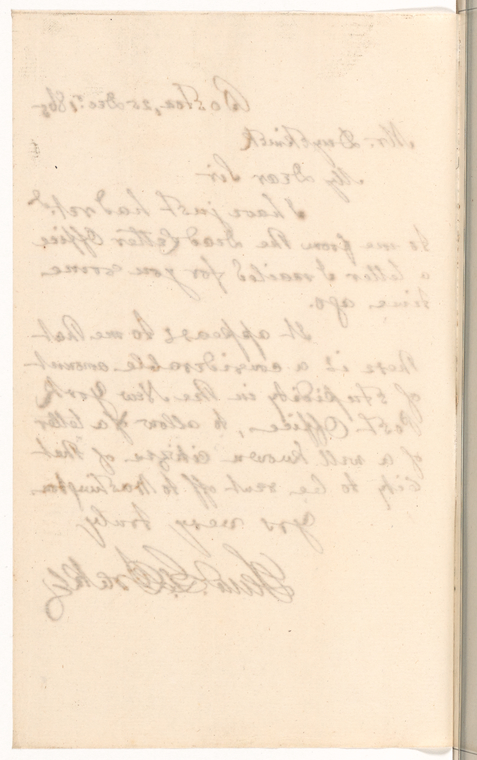 Boston, 25 Dec. 1865
Mr. Duyckinck
My Dear Sir
I have just had ret.d
to me from the Dead Letter Office
a letter I mailed for you some
time ago.
It appears to me that
there is a considerable amount
of stupidity in the New York
Post Office, to allow of a letter
of a well known citizen of that
city to be sent off to Washington.
Yrs very truly
Saml. G. Drake